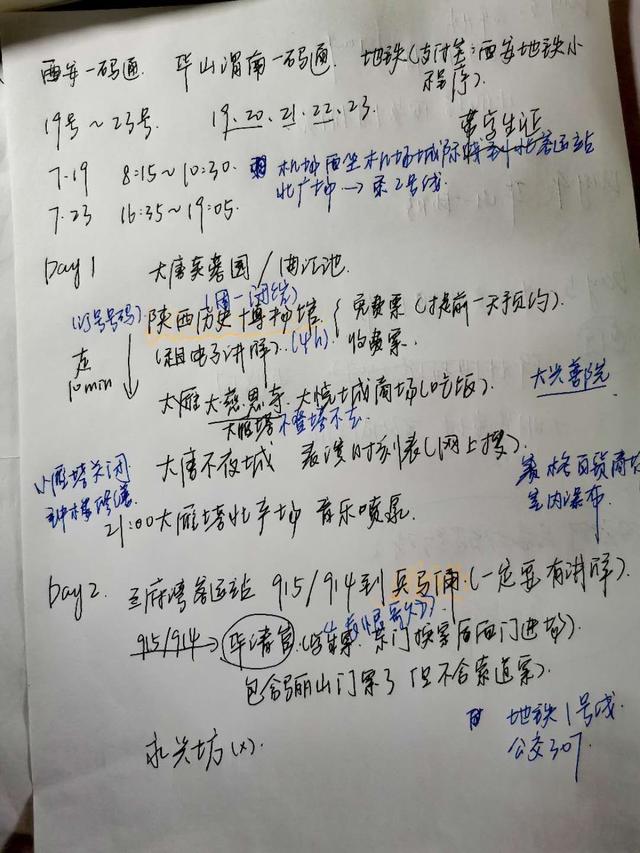 西安一码通. 华山渭南一码通. 地铁(支付宝:西安地铁小程序).
19号~23号. 19.20.21.22.23
带学生证
7.19 8:15~10:30. 机场西坐机场城际
北广场→乘2号线.
7.23 16:35~19:05.
Day 1 大唐芙蓉园/曲江池.
(周一闭馆)
陕西历史博物馆 免费票(提前一天预约).
(租电子讲解).(4h)
走10min
大雁 大慈恩寺. 大悦城商场(吃饭). 大兴善院
大雁塔不登塔不去.
小雁塔关闭
大唐不夜城 表演时刻表(网上搜).
室内瀑布
21:00大雁塔北广场 音乐喷泉.
Day 2. 三府湾客运站 915/914到兵马俑.(一定要有讲解).
915/914→华清宫.(学生票. 东门换票后西门进场)
包含骊山门票了(但不含索道票).
地铁1号线
公交307.
永兴坊(x).